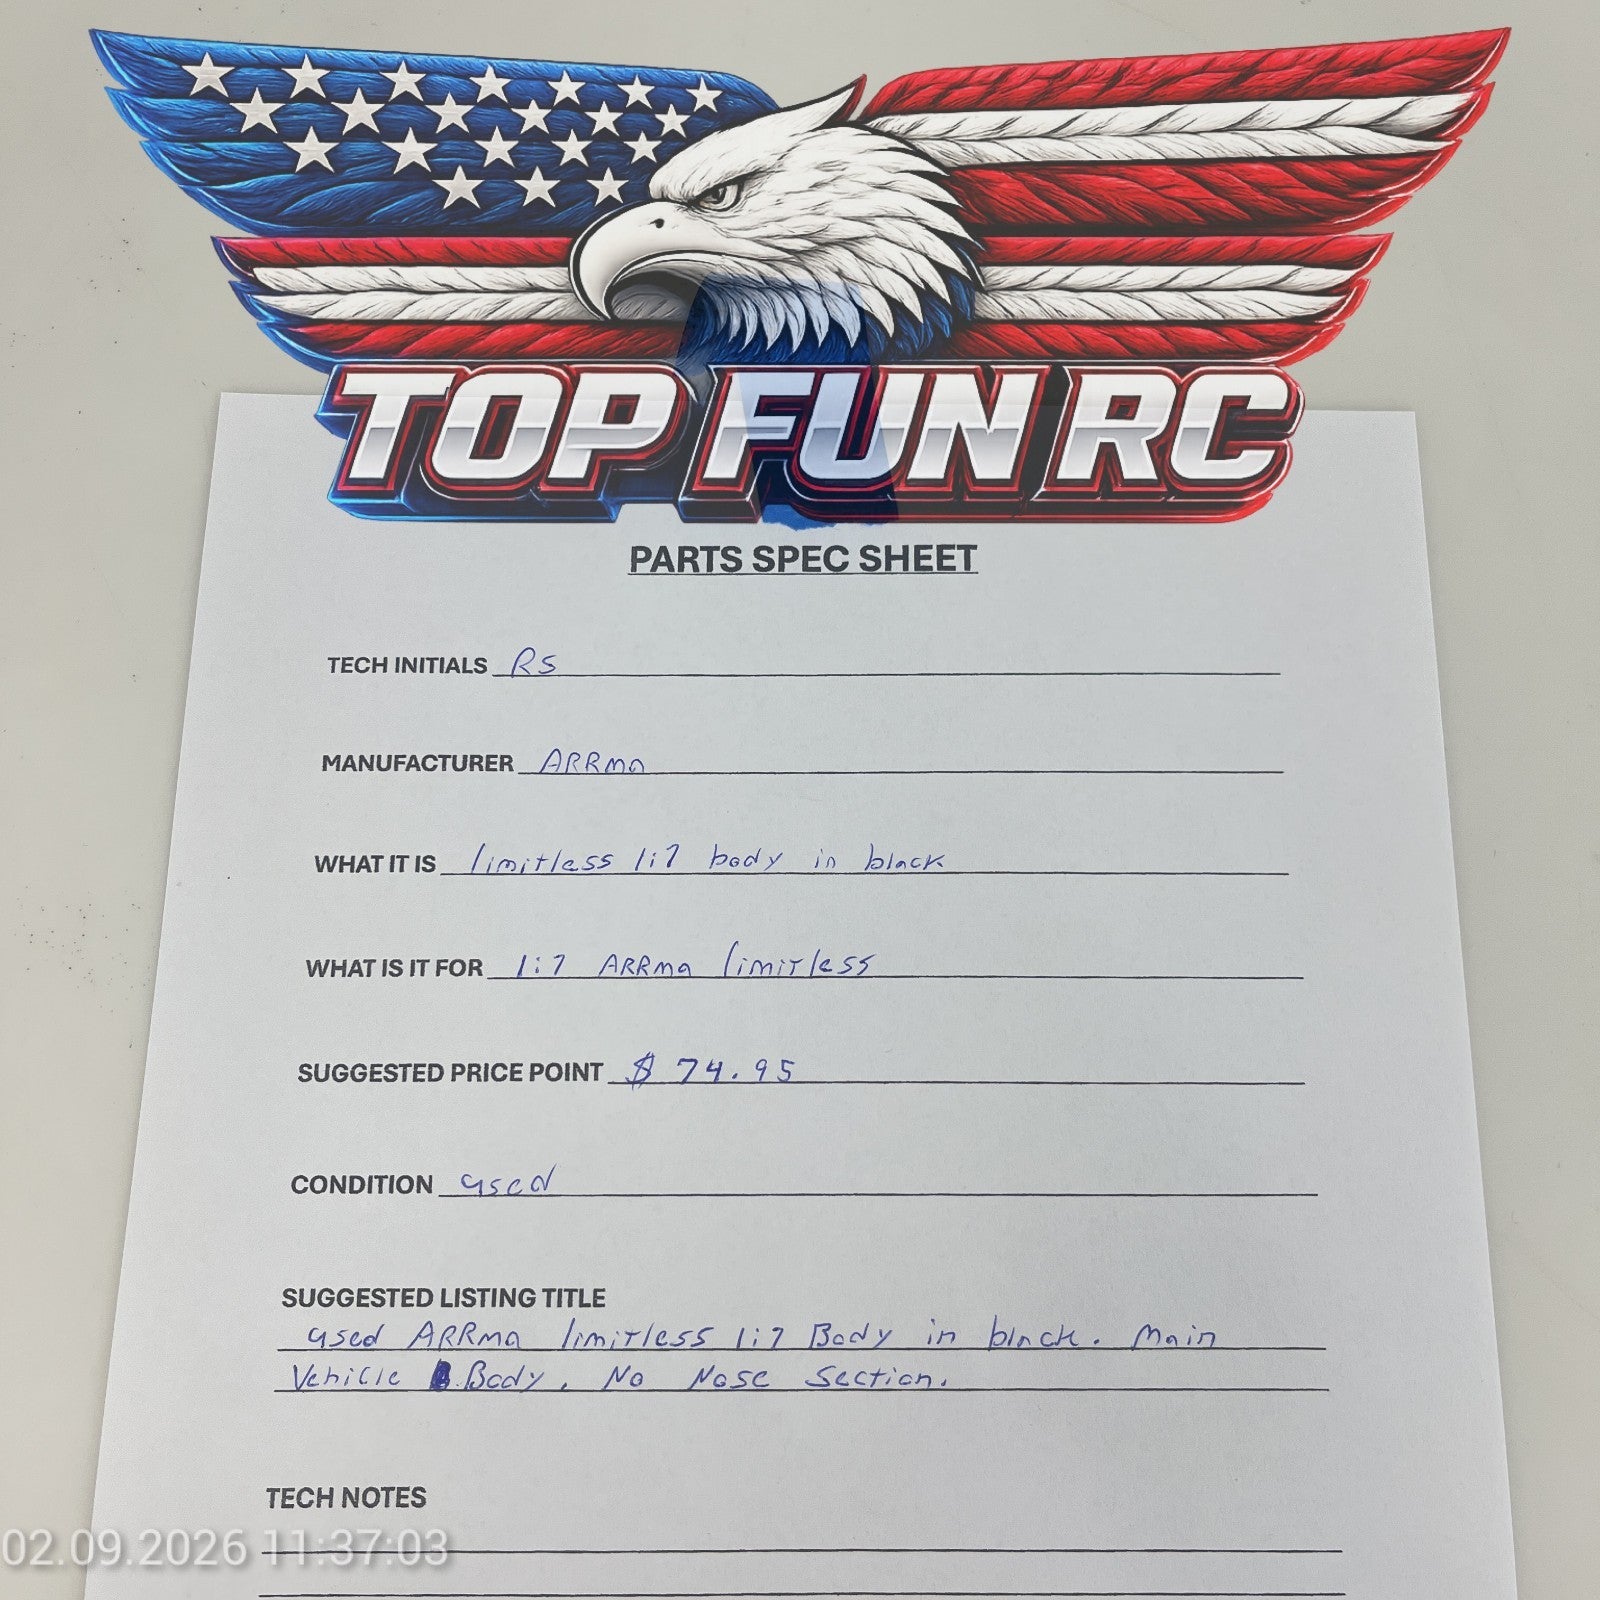 TOP FUN RC
PARTS SPEC SHEET
TECH INITIALS RS
MANUFACTURER ARRma
WHAT IT IS limitless 1:7 body in black
WHAT IS IT FOR 1:7 ARRma limitless
SUGGESTED PRICE POINT $ 74.95
CONDITION used
SUGGESTED LISTING TITLE
used ARRma limitless 1:7 Body in black. Main
Vehicle Body. No Nose Section.
TECH NOTES
02.09.2026 11:37:03